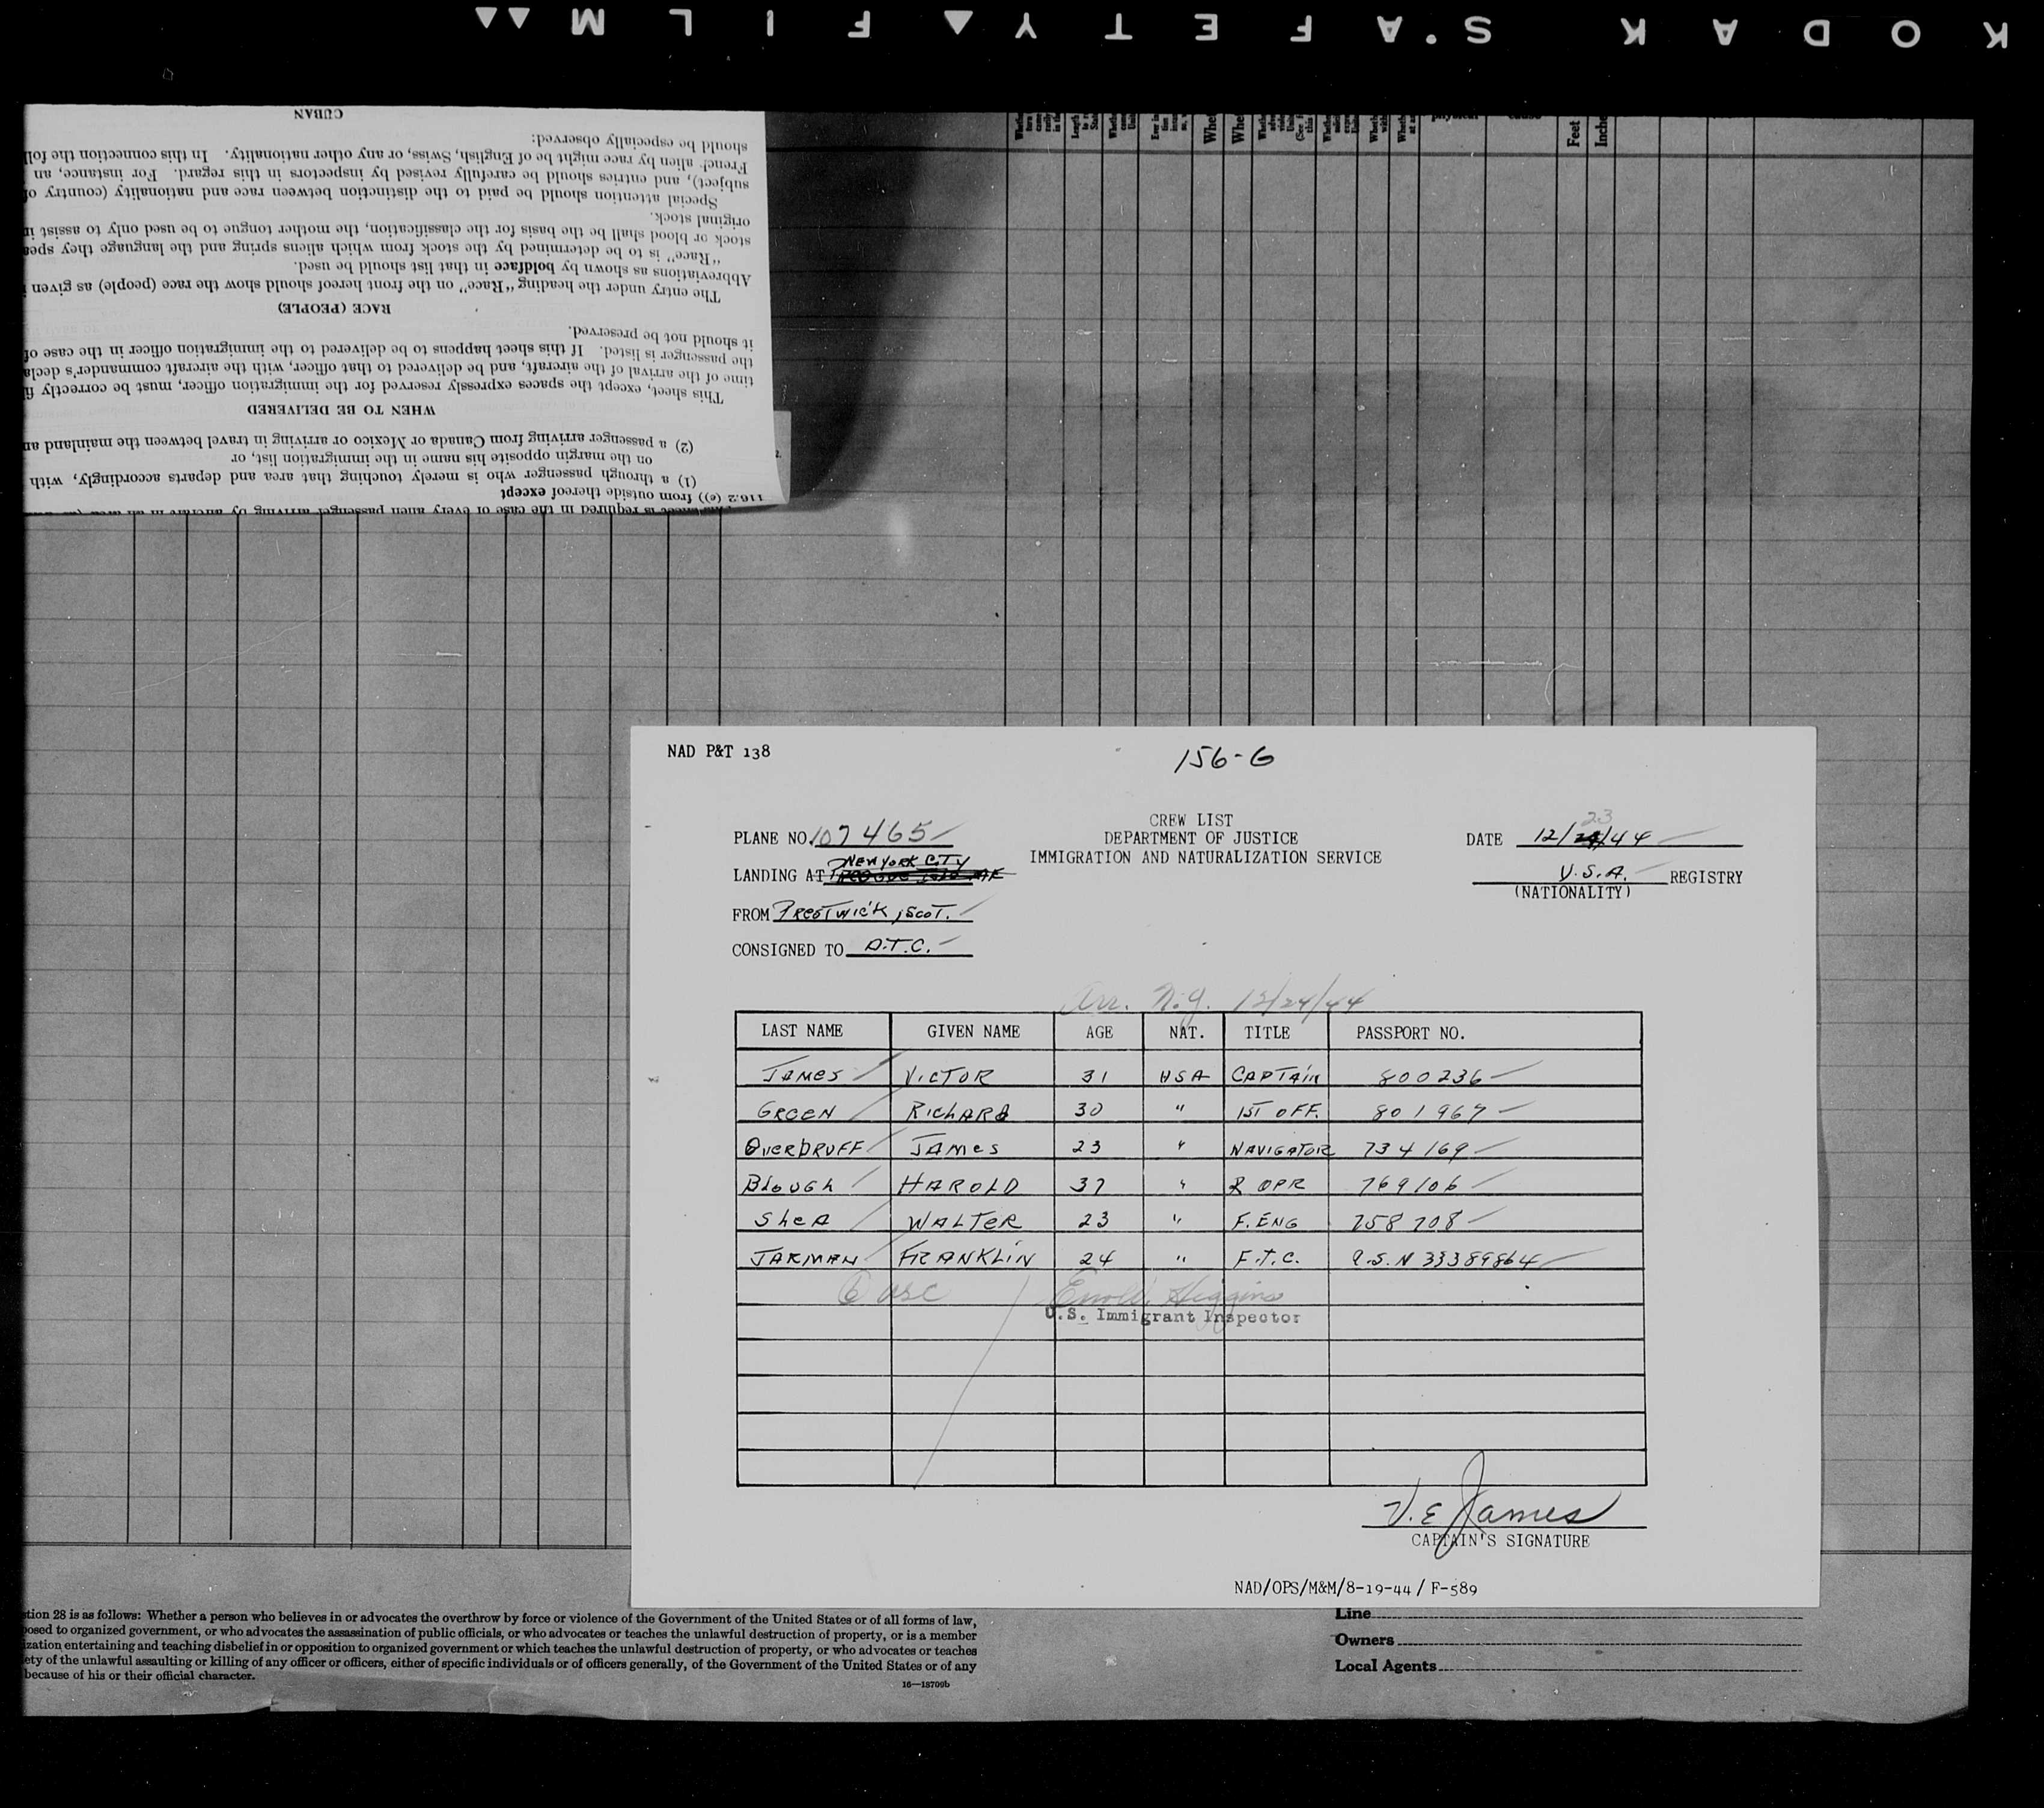 KODAK SAFETY FILM
CUBAN
should be especially observed:
French alien by race might be of English, Swiss, or any other nationality. In this connection the
subject), and entries should be carefully revised by inspectors in this regard. For instance, an
Special attention should be paid to the distinction between race and nationality (country
original stock.
stock or blood shall be the basis for the classification, the mother tongue to be used only to assist
"Race" is to be determined by the stock from which aliens spring and the language they
Abbreviations as shown by boldface in that list should be used.
The entry under the heading "Race" on the front hereof should show the race (people) as given
RACE (PEOPLE)
it should not be preserved.
the passenger is listed. If this sheet happens to be delivered to the immigration officer in the case
time of the arrival of the aircraft, and be delivered to that officer, with the aircraft commander's
This sheet, except the spaces expressly reserved for the immigration officer, must be correctly
WHEN TO BE DELIVERED
(2) a passenger arriving from Canada or Mexico or arriving in travel between the mainland
on the margin opposite his name in the immigration list, or
(1) a through passenger who is merely touching that area and departs accordingly, with
116.2 (e)) from outside thereof except
is required in the case of every alien passenger arriving by aircraft in an area
Feet
NAD P&T 138
156-G
CREW LIST
DEPARTMENT OF JUSTICE
IMMIGRATION AND NATURALIZATION SERVICE
PLANE NO. 107465
LANDING AT NEW YORK CITY
FROM PRESTWICK, SCOT.
CONSIGNED TO A.T.C.
DATE 12/23/44
U.S.A. REGISTRY
(NATIONALITY)
Arr. N.Y. 12/24/44
LAST NAME GIVEN NAME AGE NAT. TITLE PASSPORT NO.
JAMES VICTOR 31 USA CAPTAIN 800236
GREEN RICHARD 30 " 1ST OFF. 801967
OVERDRUFF JAMES 23 " NAVIGATOR 734169
BLOUGH HAROLD 37 " R OPR 769106
SHEA WALTER 23 " F. ENG 758708
JARMAN FRANKLIN 24 " F.T.C. A.S.N 33389864
6 USC Higgins
U.S. Immigrant Inspector
V. E James
CAPTAIN'S SIGNATURE
NAD/OPS/M&M/8-19-44/ F-589
tion 28 is as follows: Whether a person who believes in or advocates the overthrow by force or violence of the Government of the United States or of all forms of law,
posed to organized government, or who advocates the assassination of public officials, or who advocates or teaches the unlawful destruction of property, or is a member
ization entertaining and teaching disbelief in or opposition to organized government or which teaches the unlawful destruction of property, or who advocates or teaches
ety of the unlawful assaulting or killing of any officer or officers, either of specific individuals or of officers generally, of the Government of the United States or of any
because of his or their official character.
16—18709b
Line
Owners
Local Agents